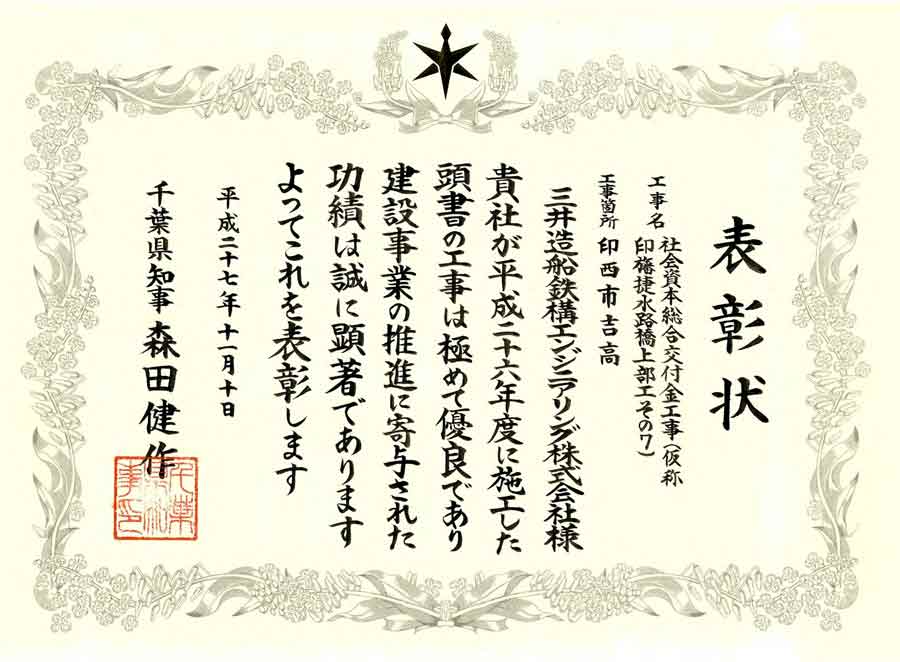 表彰状
工事名 社会資本総合交付金工事(仮称
印旛捷水路橋上部工その7)
工事箇所 印西市吉高
三井造船鉄構エンジニアリング株式会社様
貴社が平成二十六年度に施工した
頭書の工事は極めて優良であり
建設事業の推進に寄与された
功績は誠に顕著であります
よってこれを表彰します
平成二十七年十一月十日
千葉県知事 森田健作